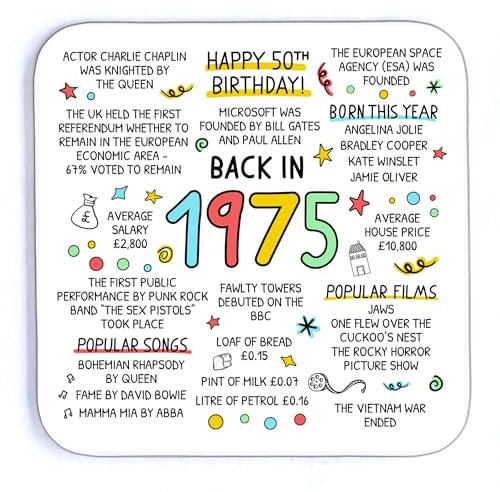 ACTOR CHARLIE CHAPLIN
WAS KNIGHTED BY
THE QUEEN
HAPPY 50TH
BIRTHDAY!
THE EUROPEAN SPACE
AGENCY (ESA) WAS
FOUNDED
THE UK HELD THE FIRST
REFERENDUM WHETHER TO
REMAIN IN THE EUROPEAN
ECONOMIC AREA -
67% VOTED TO REMAIN
MICROSOFT WAS
FOUNDED BY BILL GATES
AND PAUL ALLEN
BORN THIS YEAR
ANGELINA JOLIE
BRADLEY COOPER
KATE WINSLET
JAMIE OLIVER
BACK IN
1975
£
AVERAGE
SALARY
£2,800
AVERAGE
HOUSE PRICE
£10,800
THE FIRST PUBLIC
PERFORMANCE BY PUNK ROCK
BAND "THE SEX PISTOLS"
TOOK PLACE
FAWLTY TOWERS
DEBUTED ON THE
BBC
POPULAR FILMS
JAWS
ONE FLEW OVER THE
CUCKOO'S NEST
THE ROCKY HORROR
PICTURE SHOW
POPULAR SONGS
BOHEMIAN RHAPSODY
BY QUEEN
FAME BY DAVID BOWIE
MAMMA MIA BY ABBA
LOAF OF BREAD
£0.15
PINT OF MILK £0.07
LITRE OF PETROL £0.16
THE VIETNAM WAR
ENDED